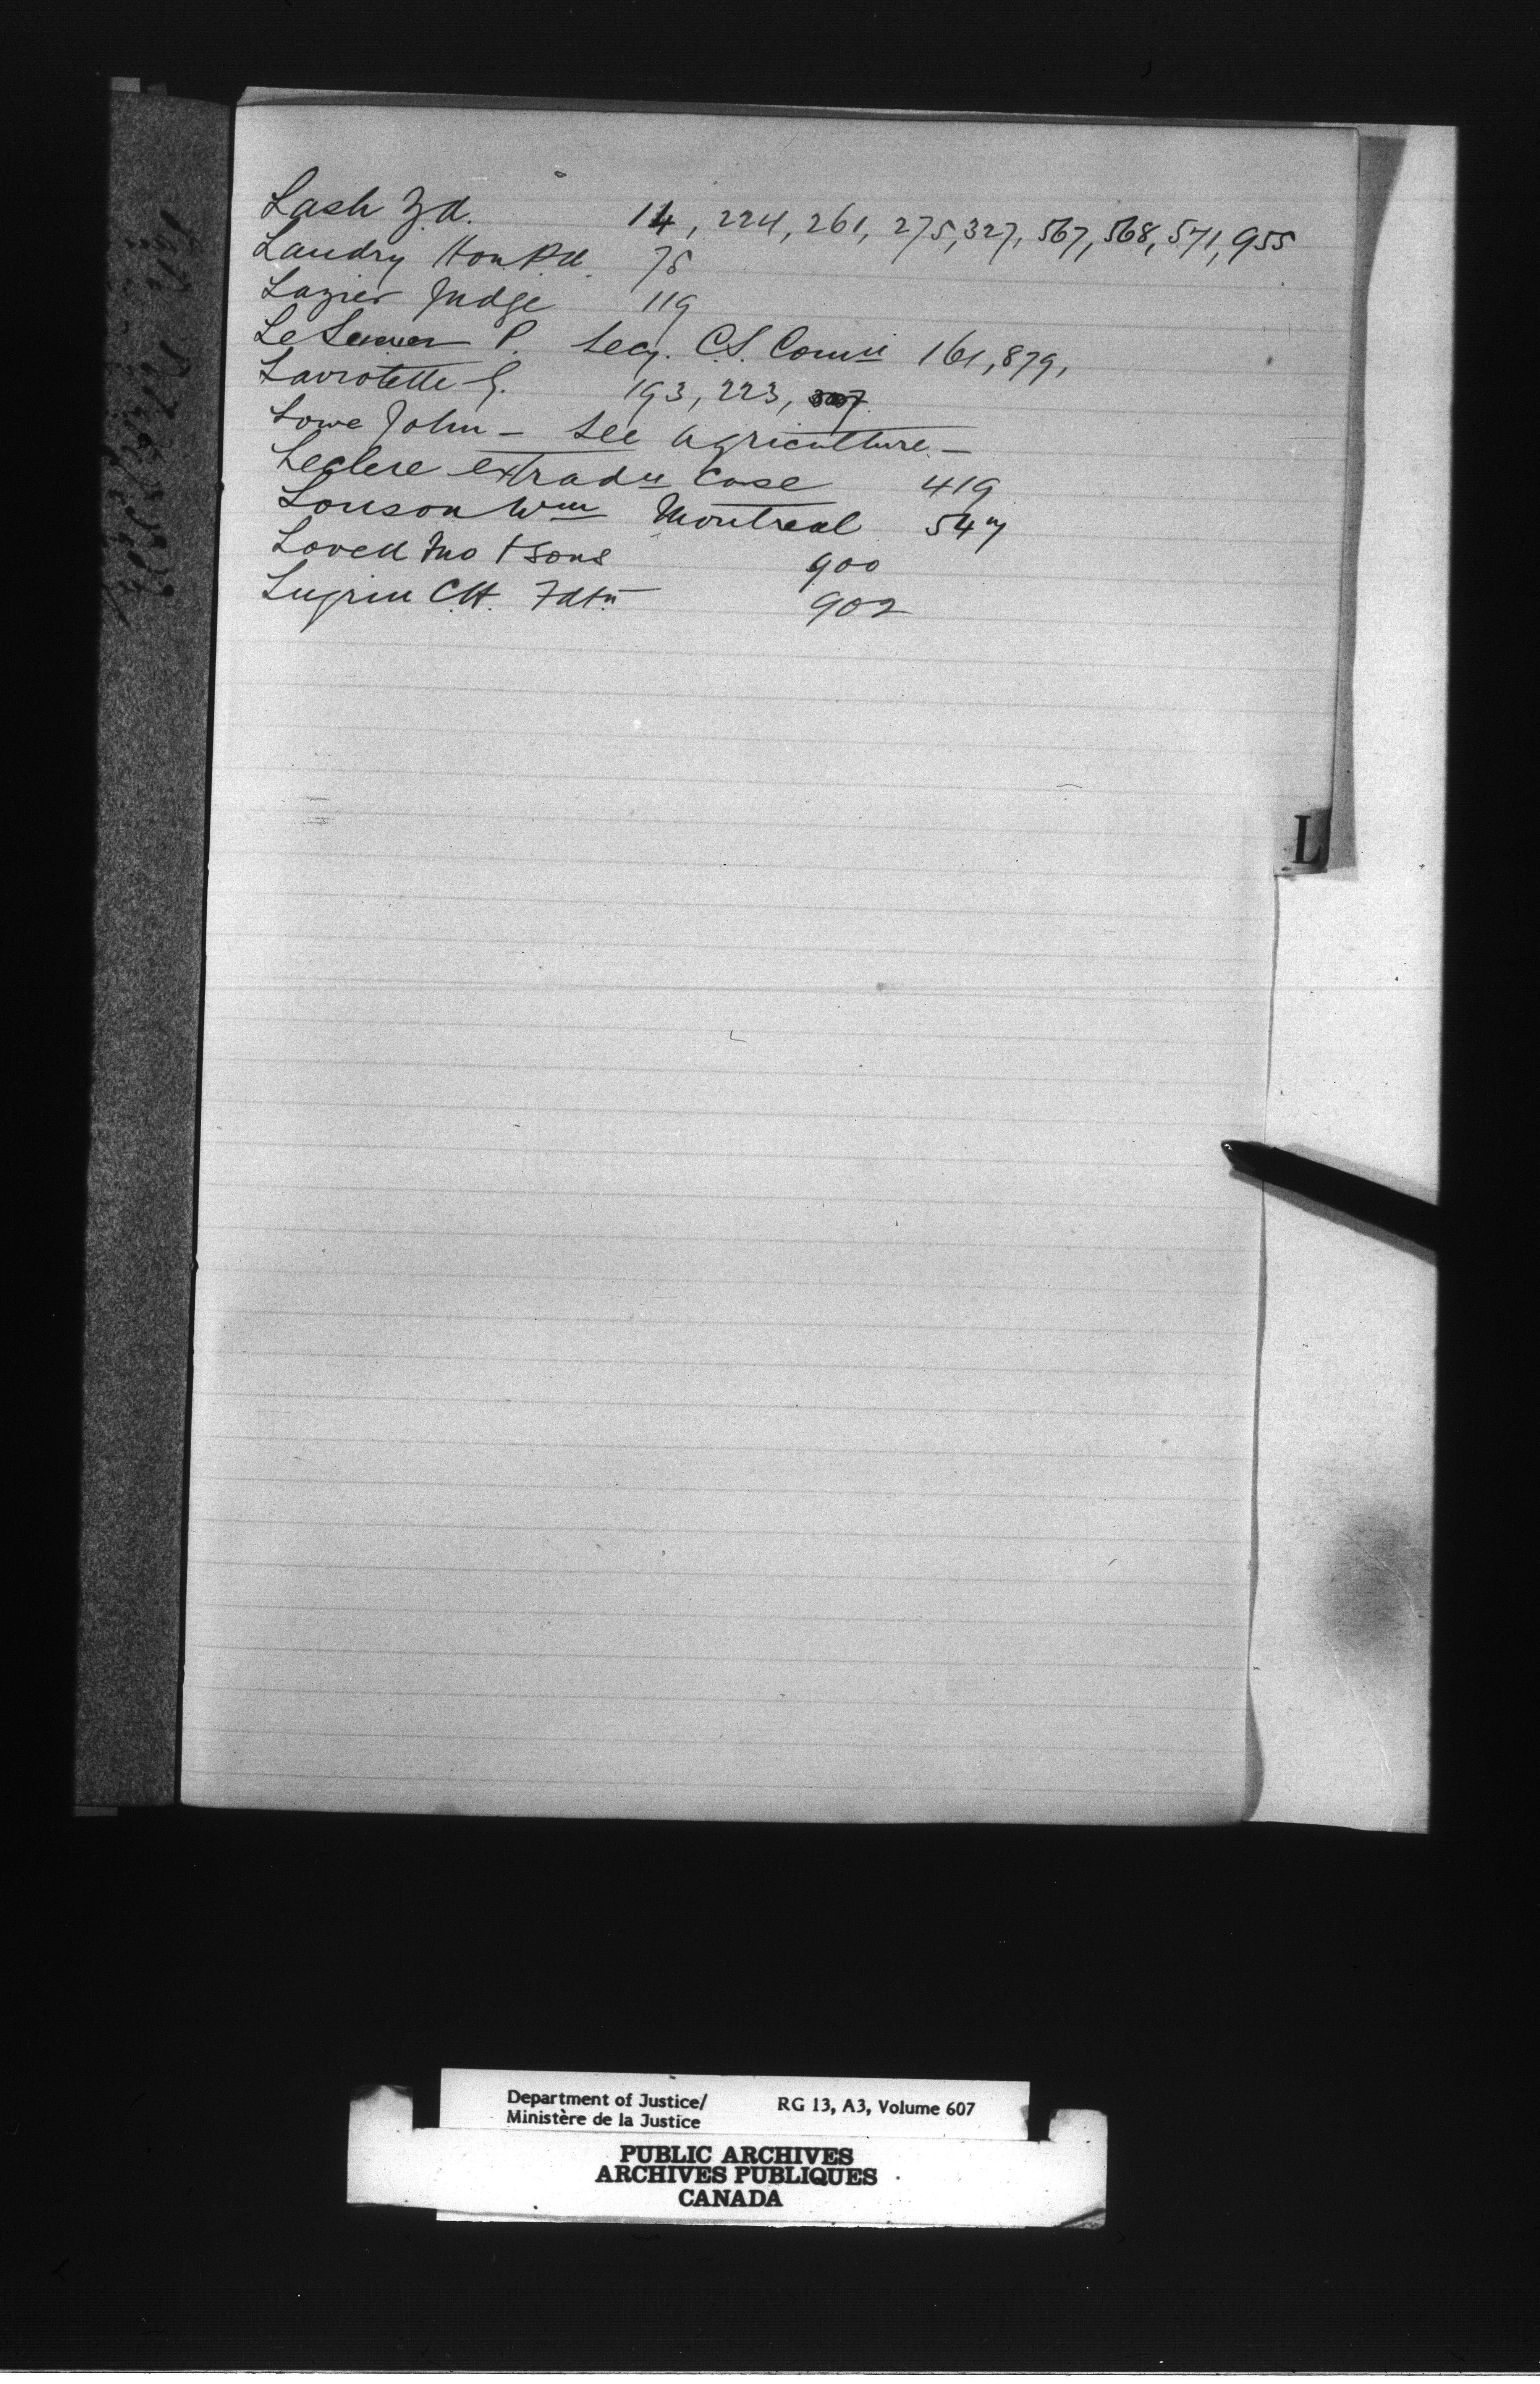 Lash Z.A. 14, 224, 261, 275, 327, 567, 568, 571, 955
Landry Hon P.A. 78
Lazier Judge 119
LeSueur P. Secy. C.S. Commn 161, 879,
Laviolette G. 193, 223, 307
Lowe John - See Agriculture -
Leclere extradn case 419
Lonson Wm Montreal 547
Lovell Jno & Sons 900
Lugrin C.H. Fdtn 902
L
Department of Justice/ RG 13, A3, Volume 607
Ministère de la Justice
PUBLIC ARCHIVES
ARCHIVES PUBLIQUES
CANADA